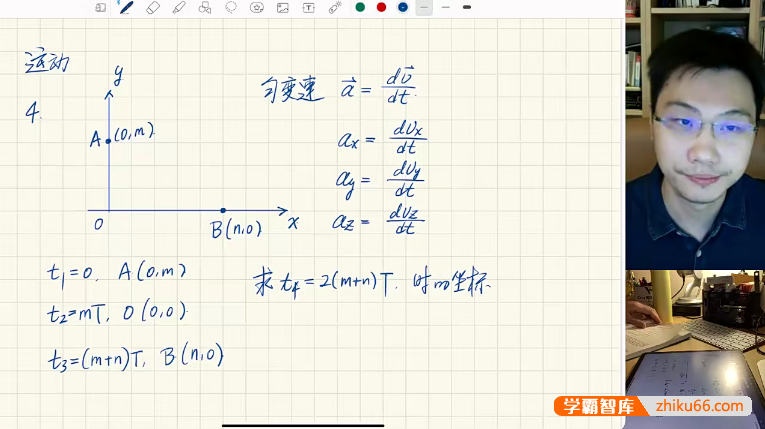 运动
4.
y
A (0,m)
O
B(n,0)
x
匀变速 a⃗ = dv⃗/dt
aₓ = dvₓ/dt
a_y = dv_y/dt
a_z = dv_z/dt
t₁=0, A(0,m)
t₂=mT, O(0,0)
t₃=(m+n)T, B(n,0)
求 t₄=2(m+n)T, 时的坐标
学霸智库 zhiku66.com